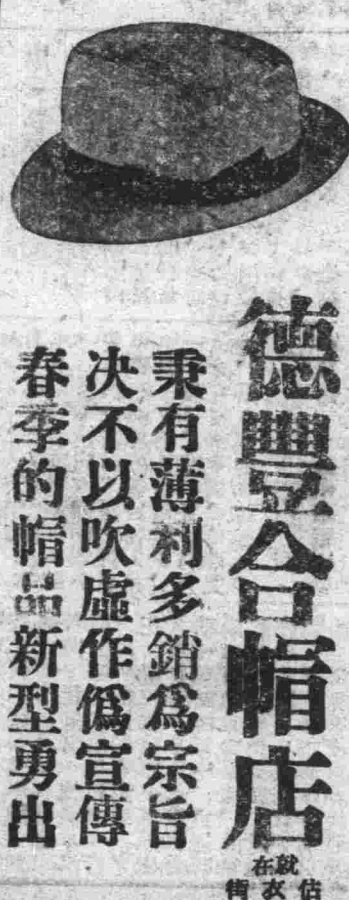 德豐合帽店
就在
估衣街
秉有薄利多銷爲宗旨
决不以吹虛作僞宣傳
春季的帽品新型勇出